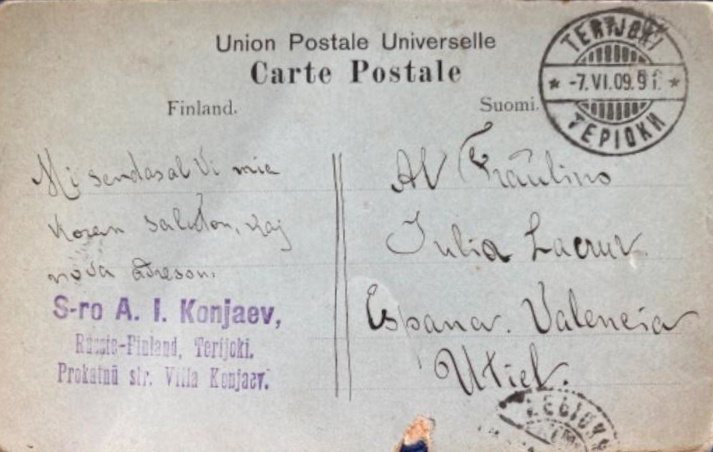 Union Postale Universelle
Carte Postale
Finland. Suomi.
TERIJOKI
-7.VI.09.
ТЕРІОКИ
Mi sendas al Vi mia
koran saluton, kaj
nova adreson.
S-ro A. I. Konjaev,
Russio-Finland, Terijoki.
Prokatnŭ str. Villa Konjaev.
Al Fraŭlino
Julia Lacruz
Espana. Valencia
Utiel.